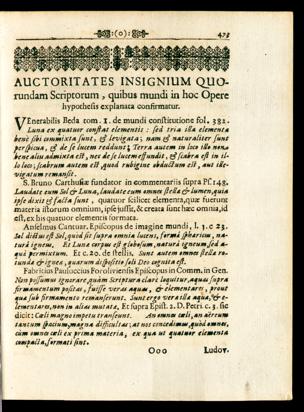 (o)
473
AUCTORITATES INSIGNIUM QUO-
rundam Scriptorum, quibus mundi in hoc Opere
hypothesis explanata confirmatur.
VEnerabilis Beda tom. 1. de mundi constitutione fol. 382.
Luna ex quatuor constat elementis: sed tria illa elementa
bene sibi commixta sunt, & levigata; nam & naturaliter sunt
perspicua, & de se lucem reddunt; Terra autem in loco illo non
bene alii admixta est, nec de se lucem effundit, & scabra est in il-
lo loco; scabrum autem est, quod rubigine obductum est, aut ille-
vigatum remansit.
S. Bruno Carthusiæ fundator in commentariis supra Ps. 148.
Laudate eum Sol & Luna, laudate eum omnes stellæ & lumen, quia
ipse dixit & facta sunt, quatuor scilicet elementa, quæ fuerunt
materia istorum omnium, ipse jussit, & creata sunt hæc omnia, id
est, ex his quatuor elementis formata.
Anselmus Cantuar. Episcopus de imagine mundi, l. 1. c 23.
Sol dictus est Sol, quod sit supra omnia lucens, formâ sphæricus, na-
turâ igneus. Et Luna corpus est globosum, naturâ igneum, sed a-
quâ permixtum. Et c. 20. de stellis. Sunt autem omnes stellæ ro-
tundæ & igneæ, quarum dispositio soli Deo cognita est.
Fabricius Pauluccius Foroliviensis Episcopus in Comm. in Gen.
Non possumus ignorare, quàm Scriptura claré loquitur, aquas supra
firmamentum positas, fuisse veras aquas, & elementares, prout
quæ sub firmamento remanserunt. Sunt ergo veræ illæ aquæ, & e-
lementares, non in alias mutatæ. Et supra Epist. 2. D. Petri c. 3. sic
dicit: Cæli magno impetu transeunt. An omnes cæli, an aërcum
tantum spatium, magna difficultas; at nos concedimus, quod omnes,
cum omnes cæli ex prima materia, ex qua ut quatuor elementa
compacta, formati sint.
Ooo
Ludov.